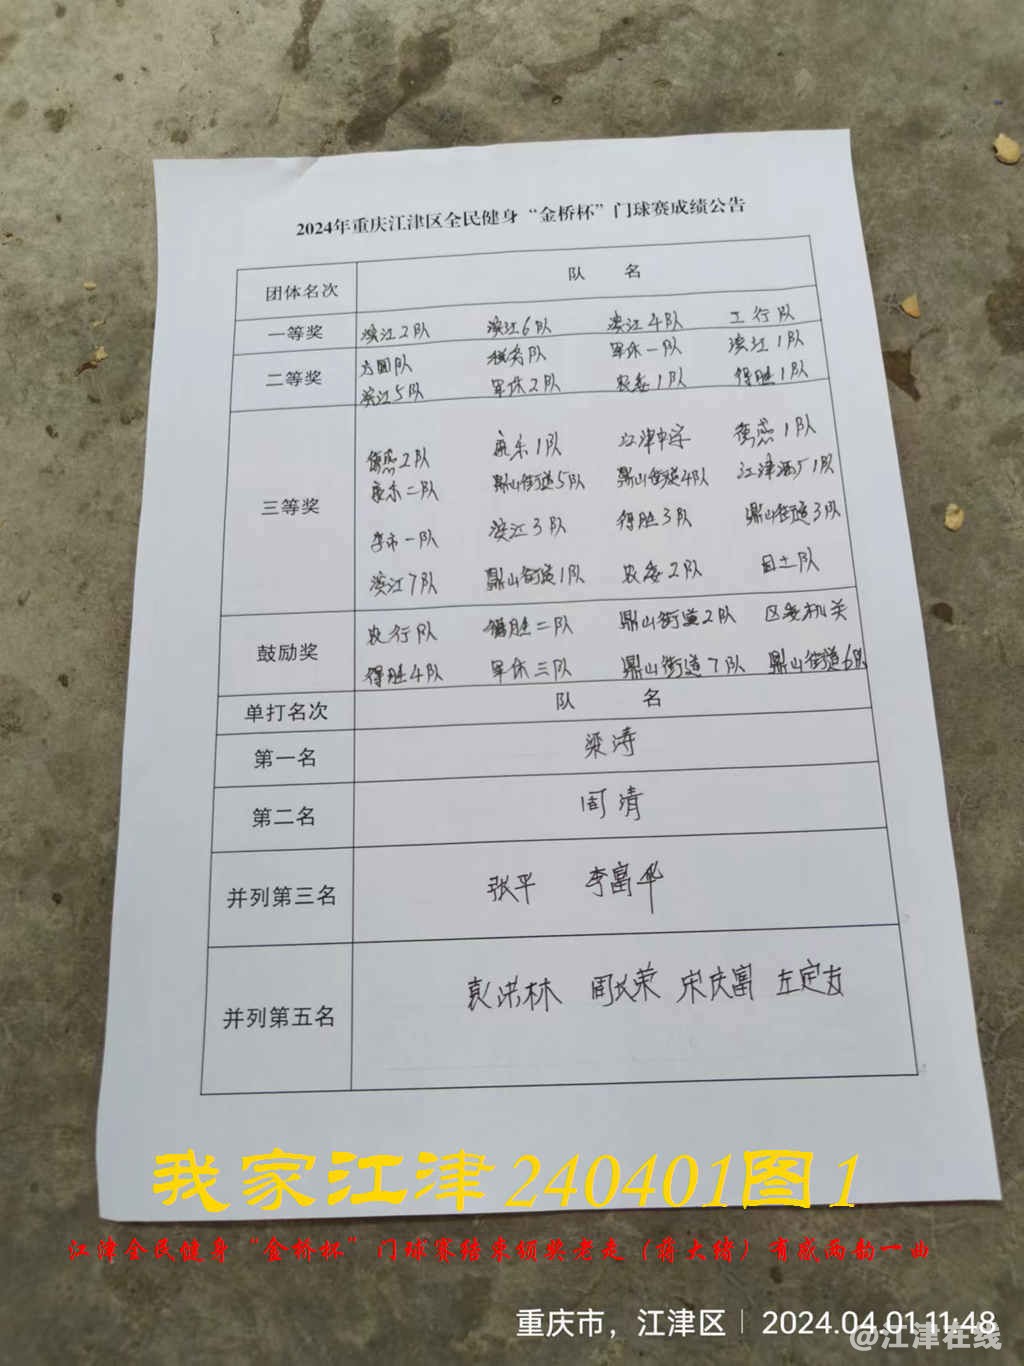 2024年重庆江津区全民健身“金桥杯”门球赛成绩公告
团体名次 队 名
一等奖 滨江2队 滨江6队 滨江4队 工行队
二等奖 方圆队 税务队 军休一队 滨江1队
滨江5队 军休2队 农委1队 得胜1队
三等奖 2队 1队 江津中学 1队
二队 鼎山街道5队 鼎山街道4队 江津酒厂1队
李市一队 滨江3队 得胜3队 鼎山街道3队
滨江7队 鼎山街道1队 农委2队 队
鼓励奖 农行队 得胜二队 鼎山街道2队 区委机关
得胜4队 军休三队 鼎山街道7队 鼎山街道6队
单打名次 队 名
第一名 梁涛
第二名 周清
并列第三名 张平 李富华
并列第五名 林 周长荣 宋庆富 左定友
我家江津240401图1
江津全民健身“金桥杯”门球赛结束颁奖老走（蒋大绪）有感两韵一曲
重庆市，江津区 | 2024.04.01 11:48
@江津在线